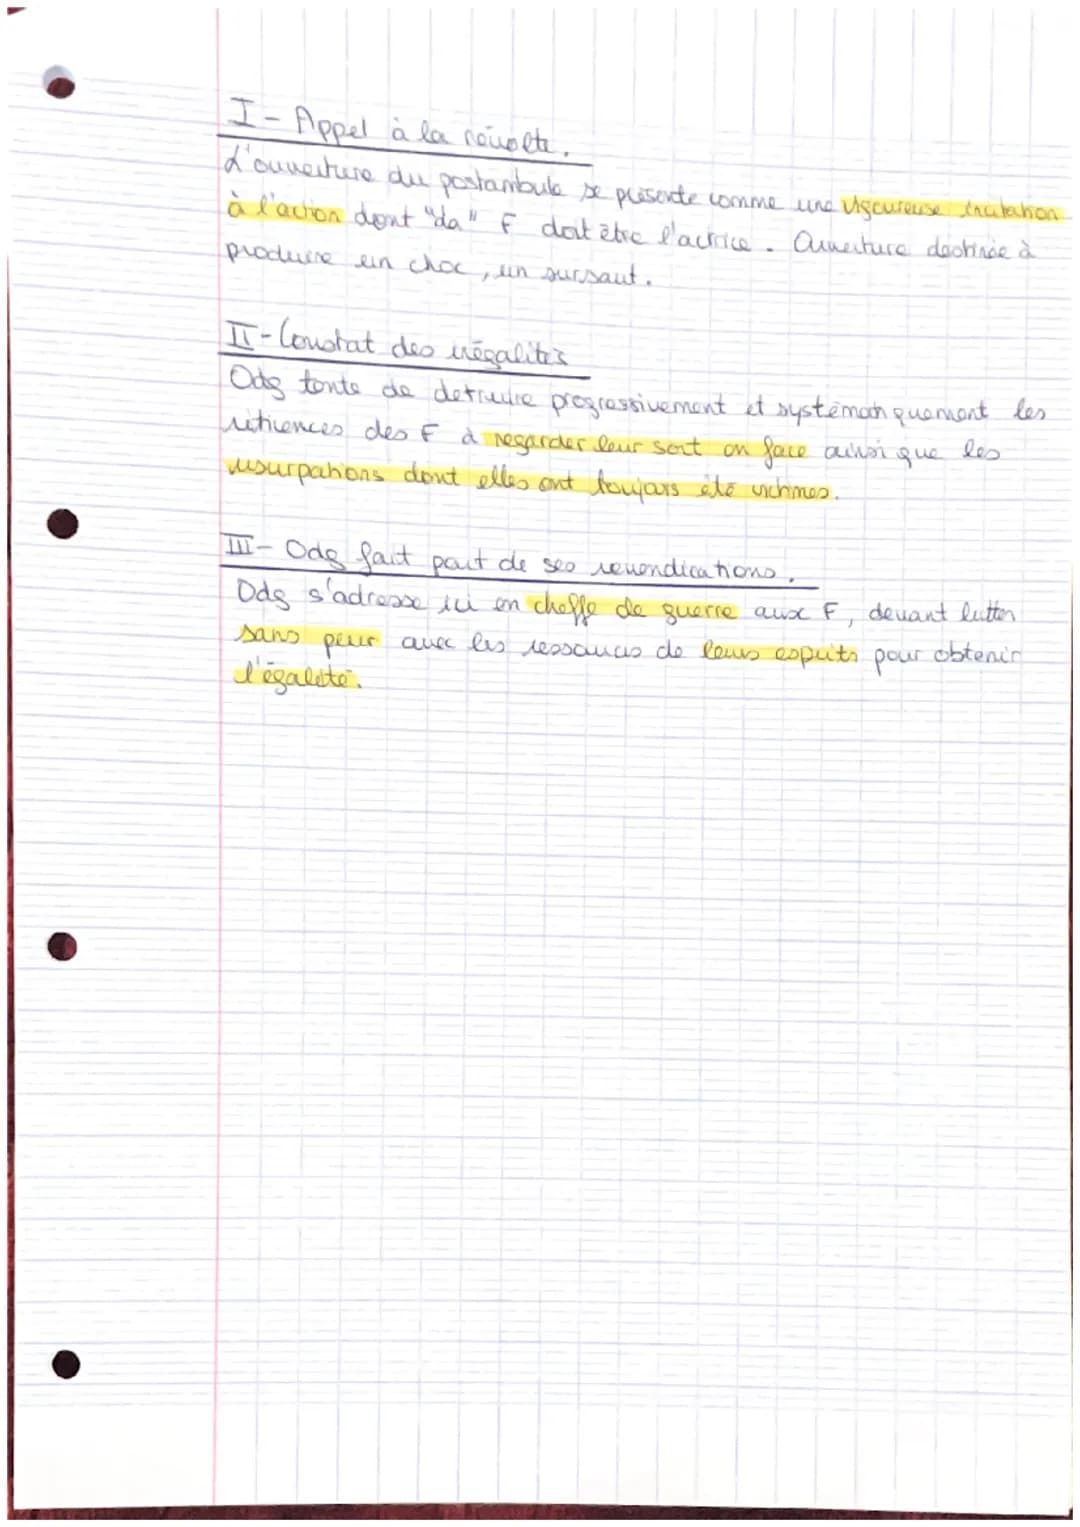 I- Appel à la révolte.
L'ouverture du postambule se présente comme une vigoureuse incitation
à l'action dont "la" F doit être l'actrice. Ouverture destinée à
produire un choc, un sursaut.
II- Constat des inégalités
Odg tente de detruire progressivement et systématiquement les
réticences des F à regarder leur sort en face ainsi que les
usurpations dont elles ont toujours été victimes.
III- Odg fait part de ses revendications.
Odg s'adresse ici en cheffe de guerre aux F, devant lutter
sans peur avec les ressources de leurs esprits pour obtenir
l'égalité.